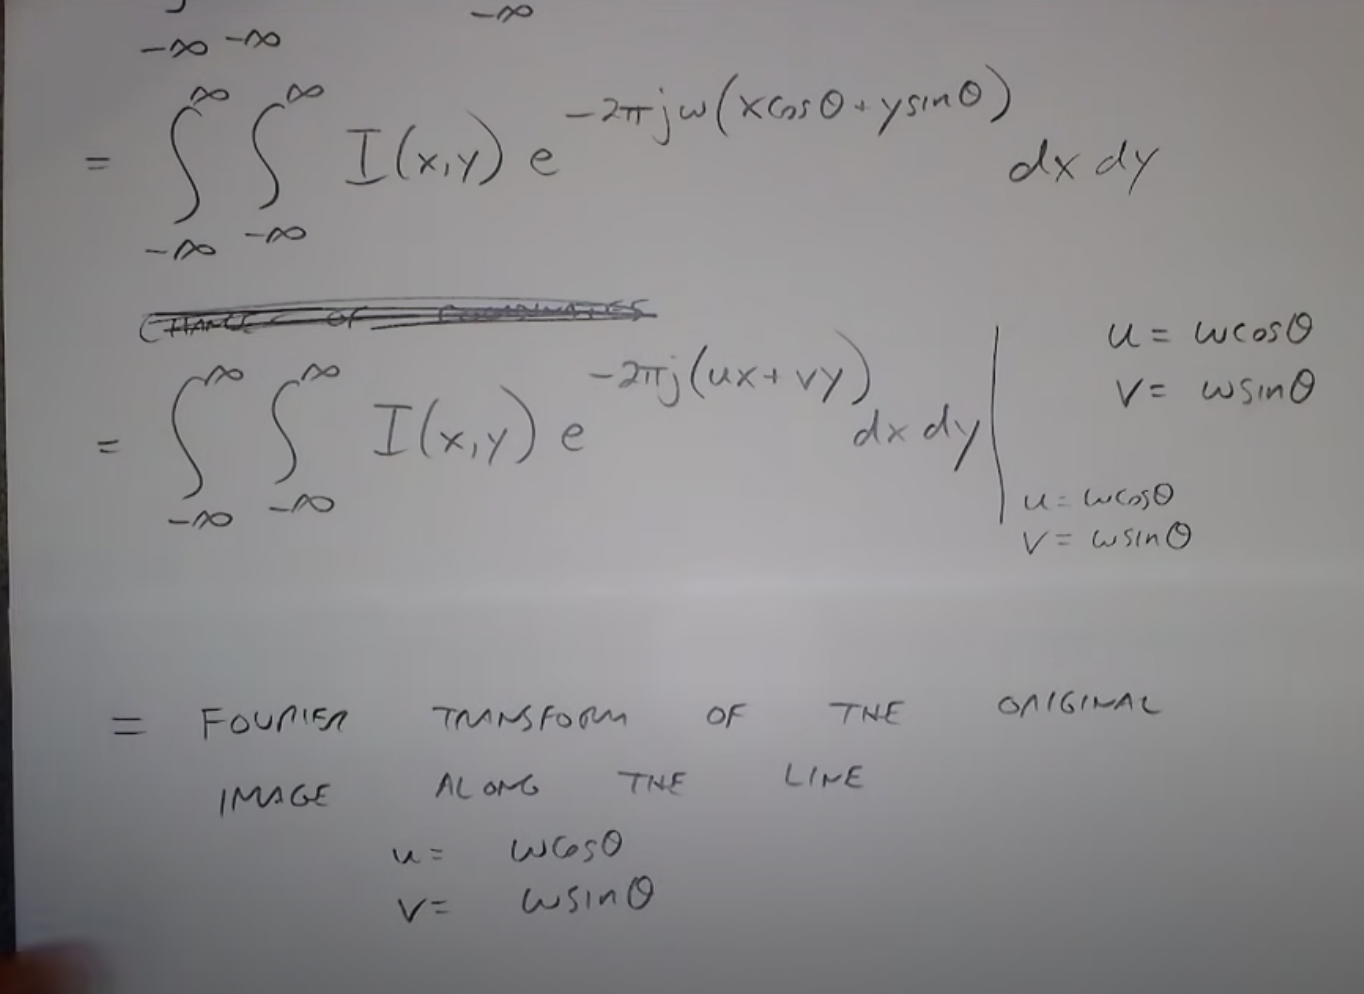 -∞ -∞ -∞
= ∫_{-∞}^{∞} ∫_{-∞}^{∞} I(x,y) e^{-2πjω(xcosθ+ysinθ)} dx dy
CHANGE OF COORDINATES
= ∫_{-∞}^{∞} ∫_{-∞}^{∞} I(x,y) e^{-2πj(ux+vy)} dx dy |_{u=ωcosθ, v=ωsinθ}
u = ωcosθ
v = ωsinθ
= FOURIER TRANSFORM OF THE ORIGINAL
IMAGE ALONG THE LINE
u = ωcosθ
v = ωsinθ